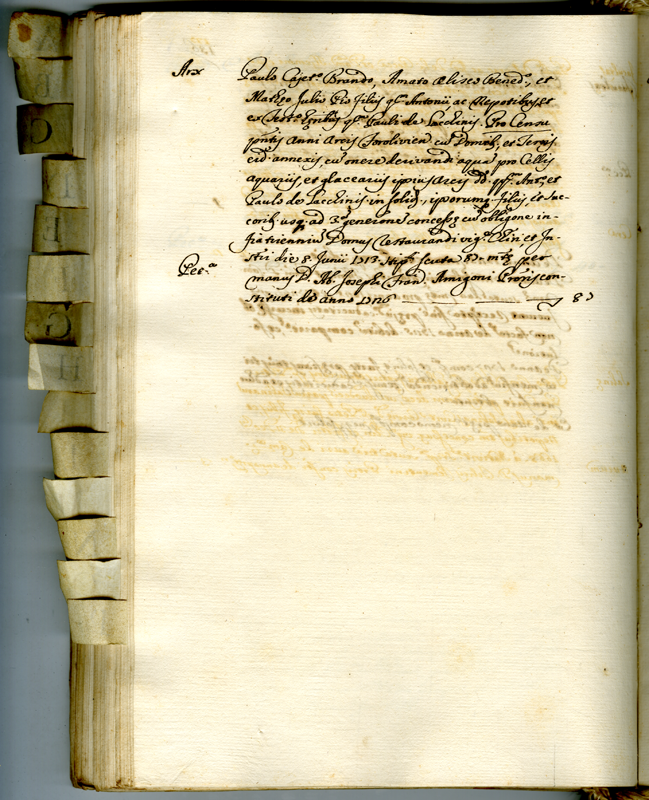 Arx Paulo Cajet.º Brando, Amato Eliseo Bened.º, et
Mattheo Julio Pio filiis q.m Antonii, ac Nepotibus, et
ex Test.º q.m Pauli de Sacchinis. Pro Censu
pntis Anni Arcis Forolivien cũ Domib., et Terris
eid. annexis cũ onere derivandi aqua pro Cellis
aquariis, et glaceariis ipsius Arcis D. q.m Ant., et
Paulo de Sacchinis in solid., ipsorumq. filiis, et Suc-
corib. usq. ad 3.ã generione concess. cũ obligone in-
fra trienniũ Domus restaurandi vig.e Chir. et In-
stri die 8. Junii 1713.
Pet.ª scuta 8 m.tę per
manus D. Ab. Josephi Fran. Amigoni Provis con-
stituti de anno 1726 — — — 8